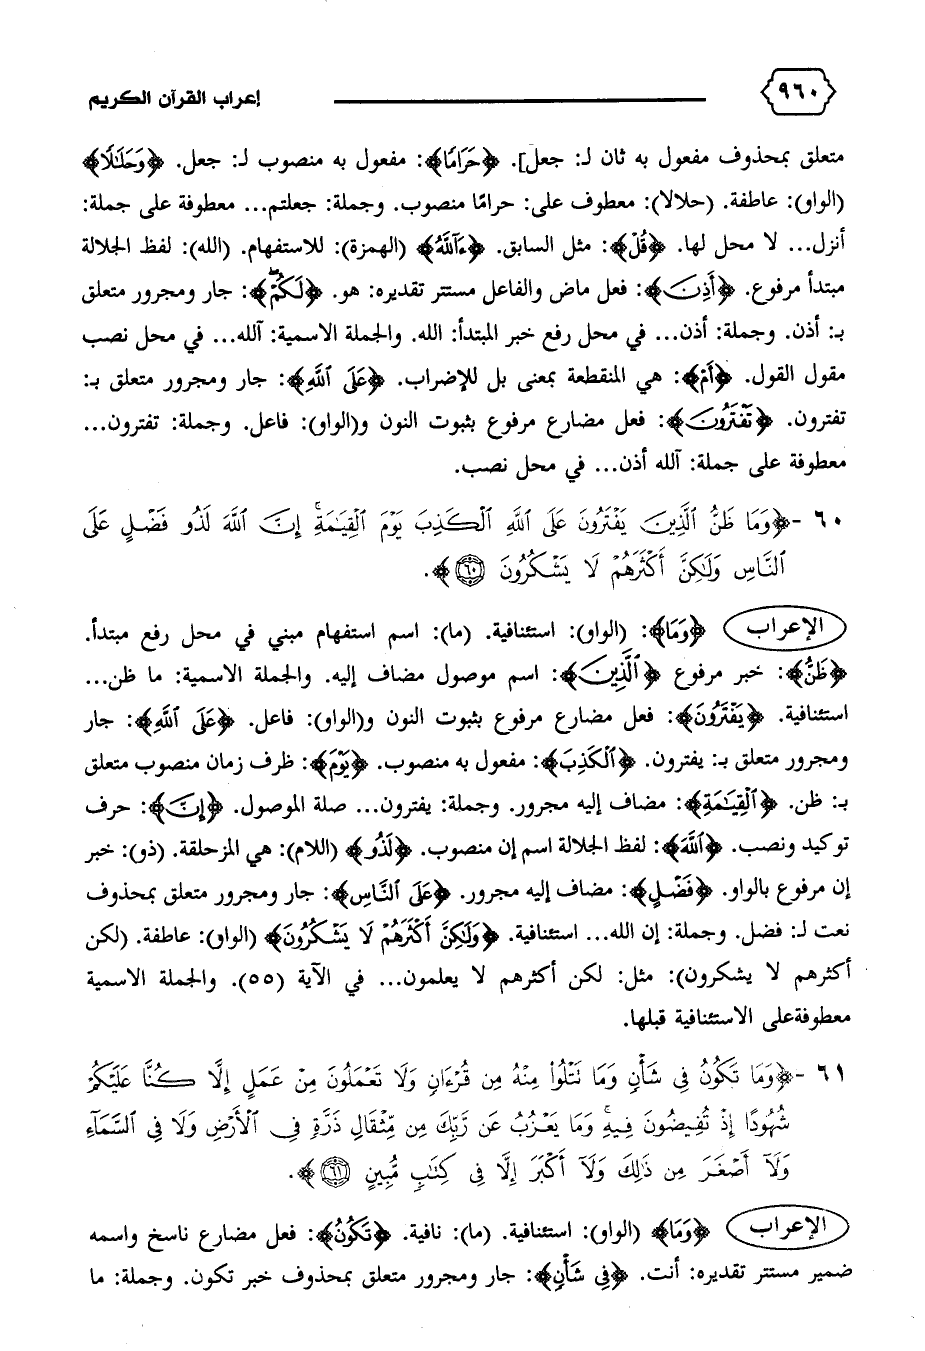 ٩٦٠ إعراب القرآن الكريم
متعلق بمحذوف مفعول به ثان لـ: جعل]. ﴿حَرَامًا﴾: مفعول به منصوب لـ: جعل. ﴿وَحَلَٰلًا﴾
(الواو): عاطفة. (حلالا): معطوف على: حرامًا منصوب. وجملة: جعلتم... معطوفة على جملة:
أنزل... لا محل لها. ﴿قُلْ﴾: مثل السابق. ﴿ءَآللَّهُ﴾ (الهمزة): للاستفهام. (الله): لفظ الجلالة
مبتدأ مرفوع. ﴿أَذِنَ﴾: فعل ماض والفاعل مستتر تقديره: هو. ﴿لَكُمْ ۖ﴾: جار ومجرور متعلق
بـ: أذن. وجملة: أذن... في محل رفع خبر المبتدأ: الله. والجملة الاسمية: آلله... في محل نصب
مقول القول. ﴿أَمْ﴾: هي المنقطعة بمعنى بل للإضراب. ﴿عَلَى ٱللَّهِ﴾: جار ومجرور متعلق بـ:
تفترون. ﴿تَفْتَرُونَ﴾: فعل مضارع مرفوع بثبوت النون و(الواو): فاعل. وجملة: تفترون...
معطوفة على جملة: آلله أذن... في محل نصب.
٦٠ -﴿وَمَا ظَنُّ ٱلَّذِينَ يَفْتَرُونَ عَلَى ٱللَّهِ ٱلْكَذِبَ يَوْمَ ٱلْقِيَٰمَةِ ۗ إِنَّ ٱللَّهَ لَذُو فَضْلٍ عَلَى
ٱلنَّاسِ وَلَٰكِنَّ أَكْثَرَهُمْ لَا يَشْكُرُونَ ٦٠﴾.
الإعراب ﴿وَمَا﴾: (الواو): استئنافية. (ما): اسم استفهام مبني في محل رفع مبتدأ.
﴿ظَنُّ﴾: خبر مرفوع ﴿ٱلَّذِينَ﴾: اسم موصول مضاف إليه. والجملة الاسمية: ما ظن...
استئنافية. ﴿يَفْتَرُونَ﴾: فعل مضارع مرفوع بثبوت النون و(الواو): فاعل. ﴿عَلَى ٱللَّهِ﴾: جار
ومجرور متعلق بـ: يفترون. ﴿ٱلْكَذِبَ﴾: مفعول به منصوب. ﴿يَوْمَ﴾: ظرف زمان منصوب متعلق
بـ: ظن. ﴿ٱلْقِيَٰمَةِ﴾: مضاف إليه مجرور. وجملة: يفترون... صلة الموصول. ﴿إِنَّ﴾: حرف
توكيد ونصب. ﴿ٱللَّهَ﴾: لفظ الجلالة اسم إن منصوب. ﴿لَذُو﴾ (اللام): هي المزحلقة. (ذو): خبر
إن مرفوع بالواو. ﴿فَضْلٍ﴾: مضاف إليه مجرور. ﴿عَلَى ٱلنَّاسِ﴾: جار ومجرور متعلق بمحذوف
نعت لـ: فضل. وجملة: إن الله... استئنافية. ﴿وَلَٰكِنَّ أَكْثَرَهُمْ لَا يَشْكُرُونَ﴾ (الواو): عاطفة. (لكن
أكثرهم لا يشكرون): مثل: لكن أكثرهم لا يعلمون... في الآية (٥٥). والجملة الاسمية
معطوفةعلى الاستئنافية قبلها.
٦١ -﴿وَمَا تَكُونُ فِى شَأْنٍ وَمَا تَتْلُوا۟ مِنْهُ مِن قُرْءَانٍ وَلَا تَعْمَلُونَ مِنْ عَمَلٍ إِلَّا كُنَّا عَلَيْكُمْ
شُهُودًا إِذْ تُفِيضُونَ فِيهِ ۚ وَمَا يَعْزُبُ عَن رَّبِّكَ مِن مِّثْقَالِ ذَرَّةٍ فِى ٱلْأَرْضِ وَلَا فِى ٱلسَّمَآءِ
وَلَآ أَصْغَرَ مِن ذَٰلِكَ وَلَآ أَكْبَرَ إِلَّا فِى كِتَٰبٍ مُّبِينٍ ٦١﴾.
الإعراب ﴿وَمَا﴾ (الواو): استئنافية. (ما): نافية. ﴿تَكُونُ﴾: فعل مضارع ناسخ واسمه
ضمير مستتر تقديره: أنت. ﴿فِى شَأْنٍ﴾: جار ومجرور متعلق بمحذوف خبر تكون. وجملة: ما